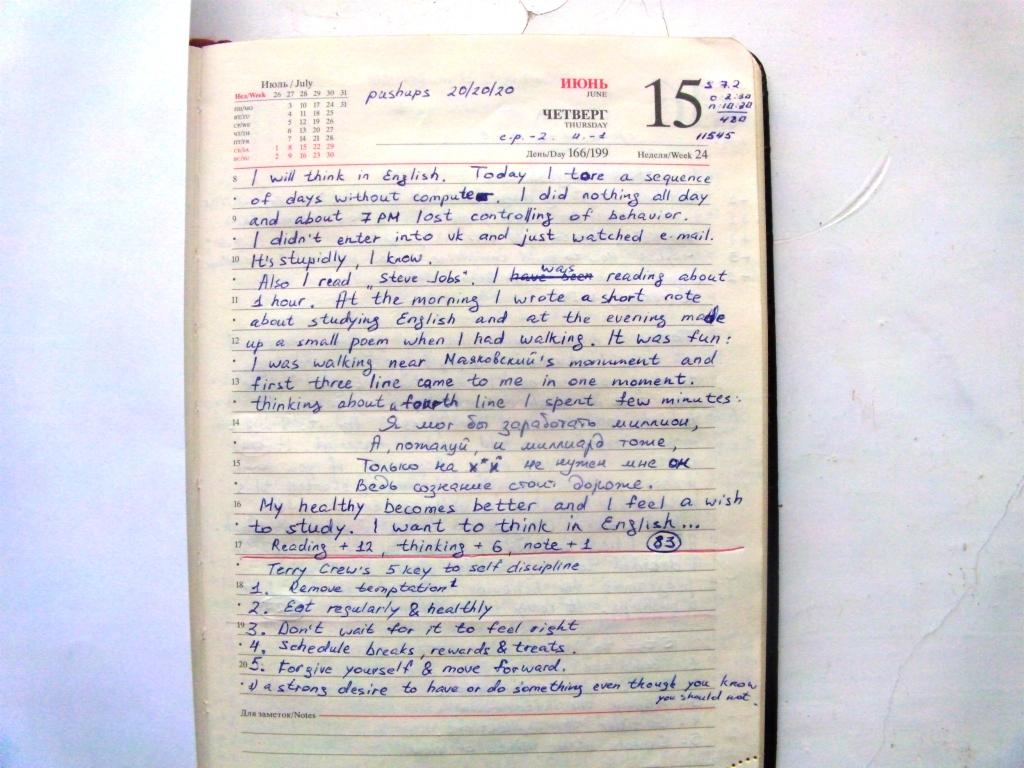 Июль / July
Нед/Week 26 27 28 29 30 31
ПН/MO 3 10 17 24 31
ВТ/TU 4 11 18 25
СР/WE 5 12 19 26
ЧТ/TH 6 13 20 27
ПТ/FR 7 14 21 28
СБ/SA 1 8 15 22 29
ВС/SU 2 9 16 23 30
pushups 20/20/20
ИЮНЬ
JUNE
15
ЧЕТВЕРГ
THURSDAY
s 7.2
o 2:30
n 10:20
420
11545
с.р. -2. и. -1
День/Day 166/199 Неделя/Week 24
8 I will think in English. Today I tore a sequence
of days without computer. I did nothing all day
9 and about 7 PM lost controlling of behavior.
I didn't enter into vk and just watched e-mail.
10 It's stupidly, I know.
Also I read „Steve Jobs". I have been was reading about
11 1 hour. At the morning I wrote a short note
about studying English and at the evening made
12 up a small poem when I had walking. It was fun:
I was walking near Маяковский's monument and
13 first three line came to me in one moment.
thinking about a fourth line I spent few minutes:
14 Я мог бы заработать миллион,
А, пожалуй, и миллиард тоже,
15 Только на х*й не нужен мне он
Ведь сознание стоит дороже.
16 My healthy becomes better and I feel a wish
to study. I want to think in English...
17 Reading + 12, thinking + 6, note + 1 83
Terry Crew's 5 key to self discipline
18 1. Remove temptation¹
2. Eat regularly & healthly
19 3. Don't wait for it to feel right
4. Schedule breaks, rewards & treats.
20 5. Forgive yourself & move forward.
1) a strong desire to have or do something even though you know
you should not.
Для заметок/Notes